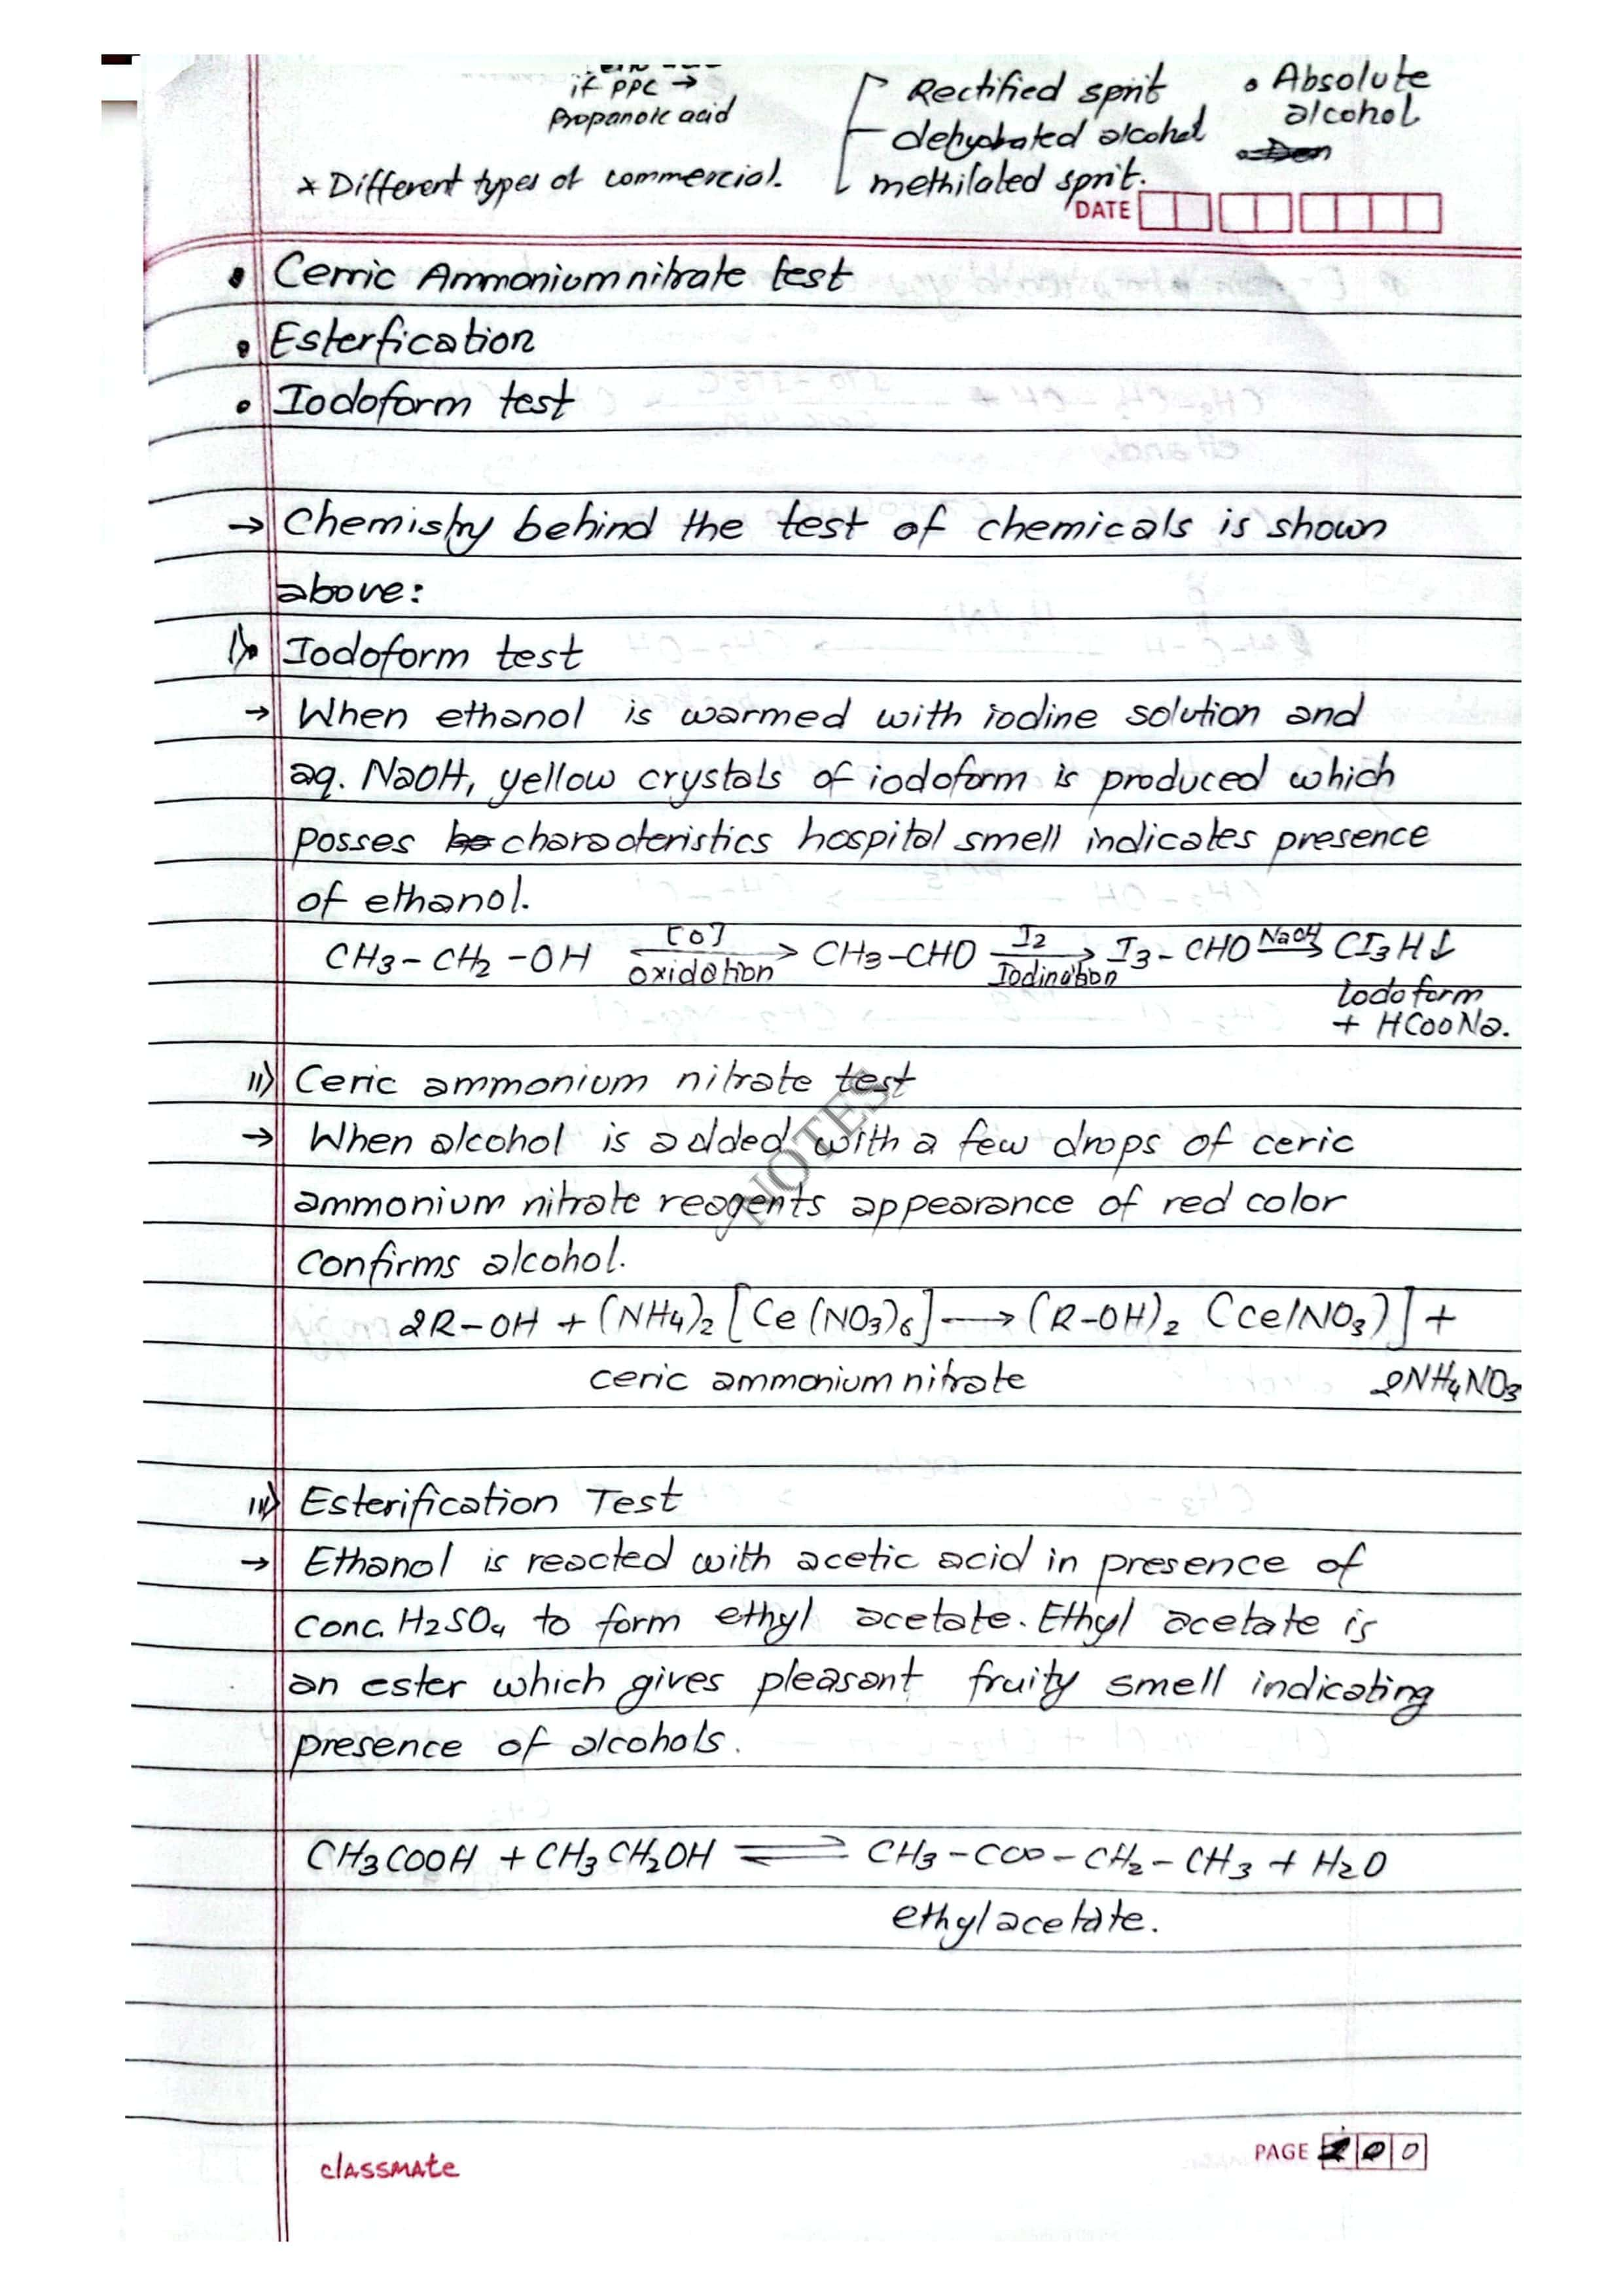 if PPC →
Propanoic acid
* Different types of commercial.
Rectified sprit
dehydrated alcohol
methilated sprit.
• Absolute
alcohol
DATE
• Cerric Ammonium nitrate test
• Esterfication
• Iodoform test
→ Chemistry behind the test of chemicals is shown
above:
i) Iodoform test
→ When ethanol is warmed with iodine solution and
aq. NaOH, yellow crystals of iodoform is produced which
posses characteristics hospital smell indicates presence
of ethanol.
CH3-CH2-OH [O] oxidation → CH3-CHO I2 Iodination → I3-CHO NaOH → CI3H↓
Iodoform
+ HCOONa.
ii) Ceric ammonium nitrate test
→ When alcohol is added with a few drops of ceric
ammonium nitrate reagents appearance of red color
confirms alcohol.
2R-OH + (NH4)2 [Ce(NO3)6] → (R-OH)2 [Ce(NO3)] +
ceric ammonium nitrate 2NH4NO3
NOTES
iv) Esterification Test
→ Ethanol is reacted with acetic acid in presence of
conc. H2SO4 to form ethyl acetate. Ethyl acetate is
an ester which gives pleasant fruity smell indicating
presence of alcohols.
CH3COOH + CH3CH2OH ⇌ CH3-COO-CH2-CH3 + H2O
ethyl acetate.
classmate
PAGE 100